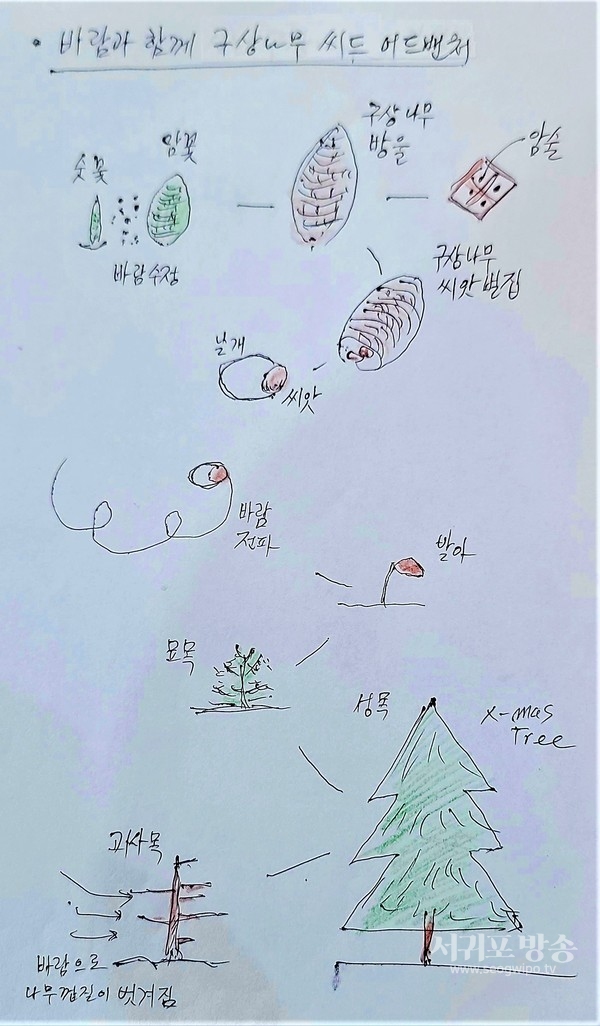 • 바람과 함께 구상나무 씨드 어드벤처
숫꽃
암꽃
바람수정
구상나무
방울
암술
구상나무
씨앗 벌집
날개
씨앗
바람
전파
발아
묘목
성목
X-mas
Tree
고사목
바람으로
나무껍질이 벗겨짐
서귀포방송
www.seogwipo.tv